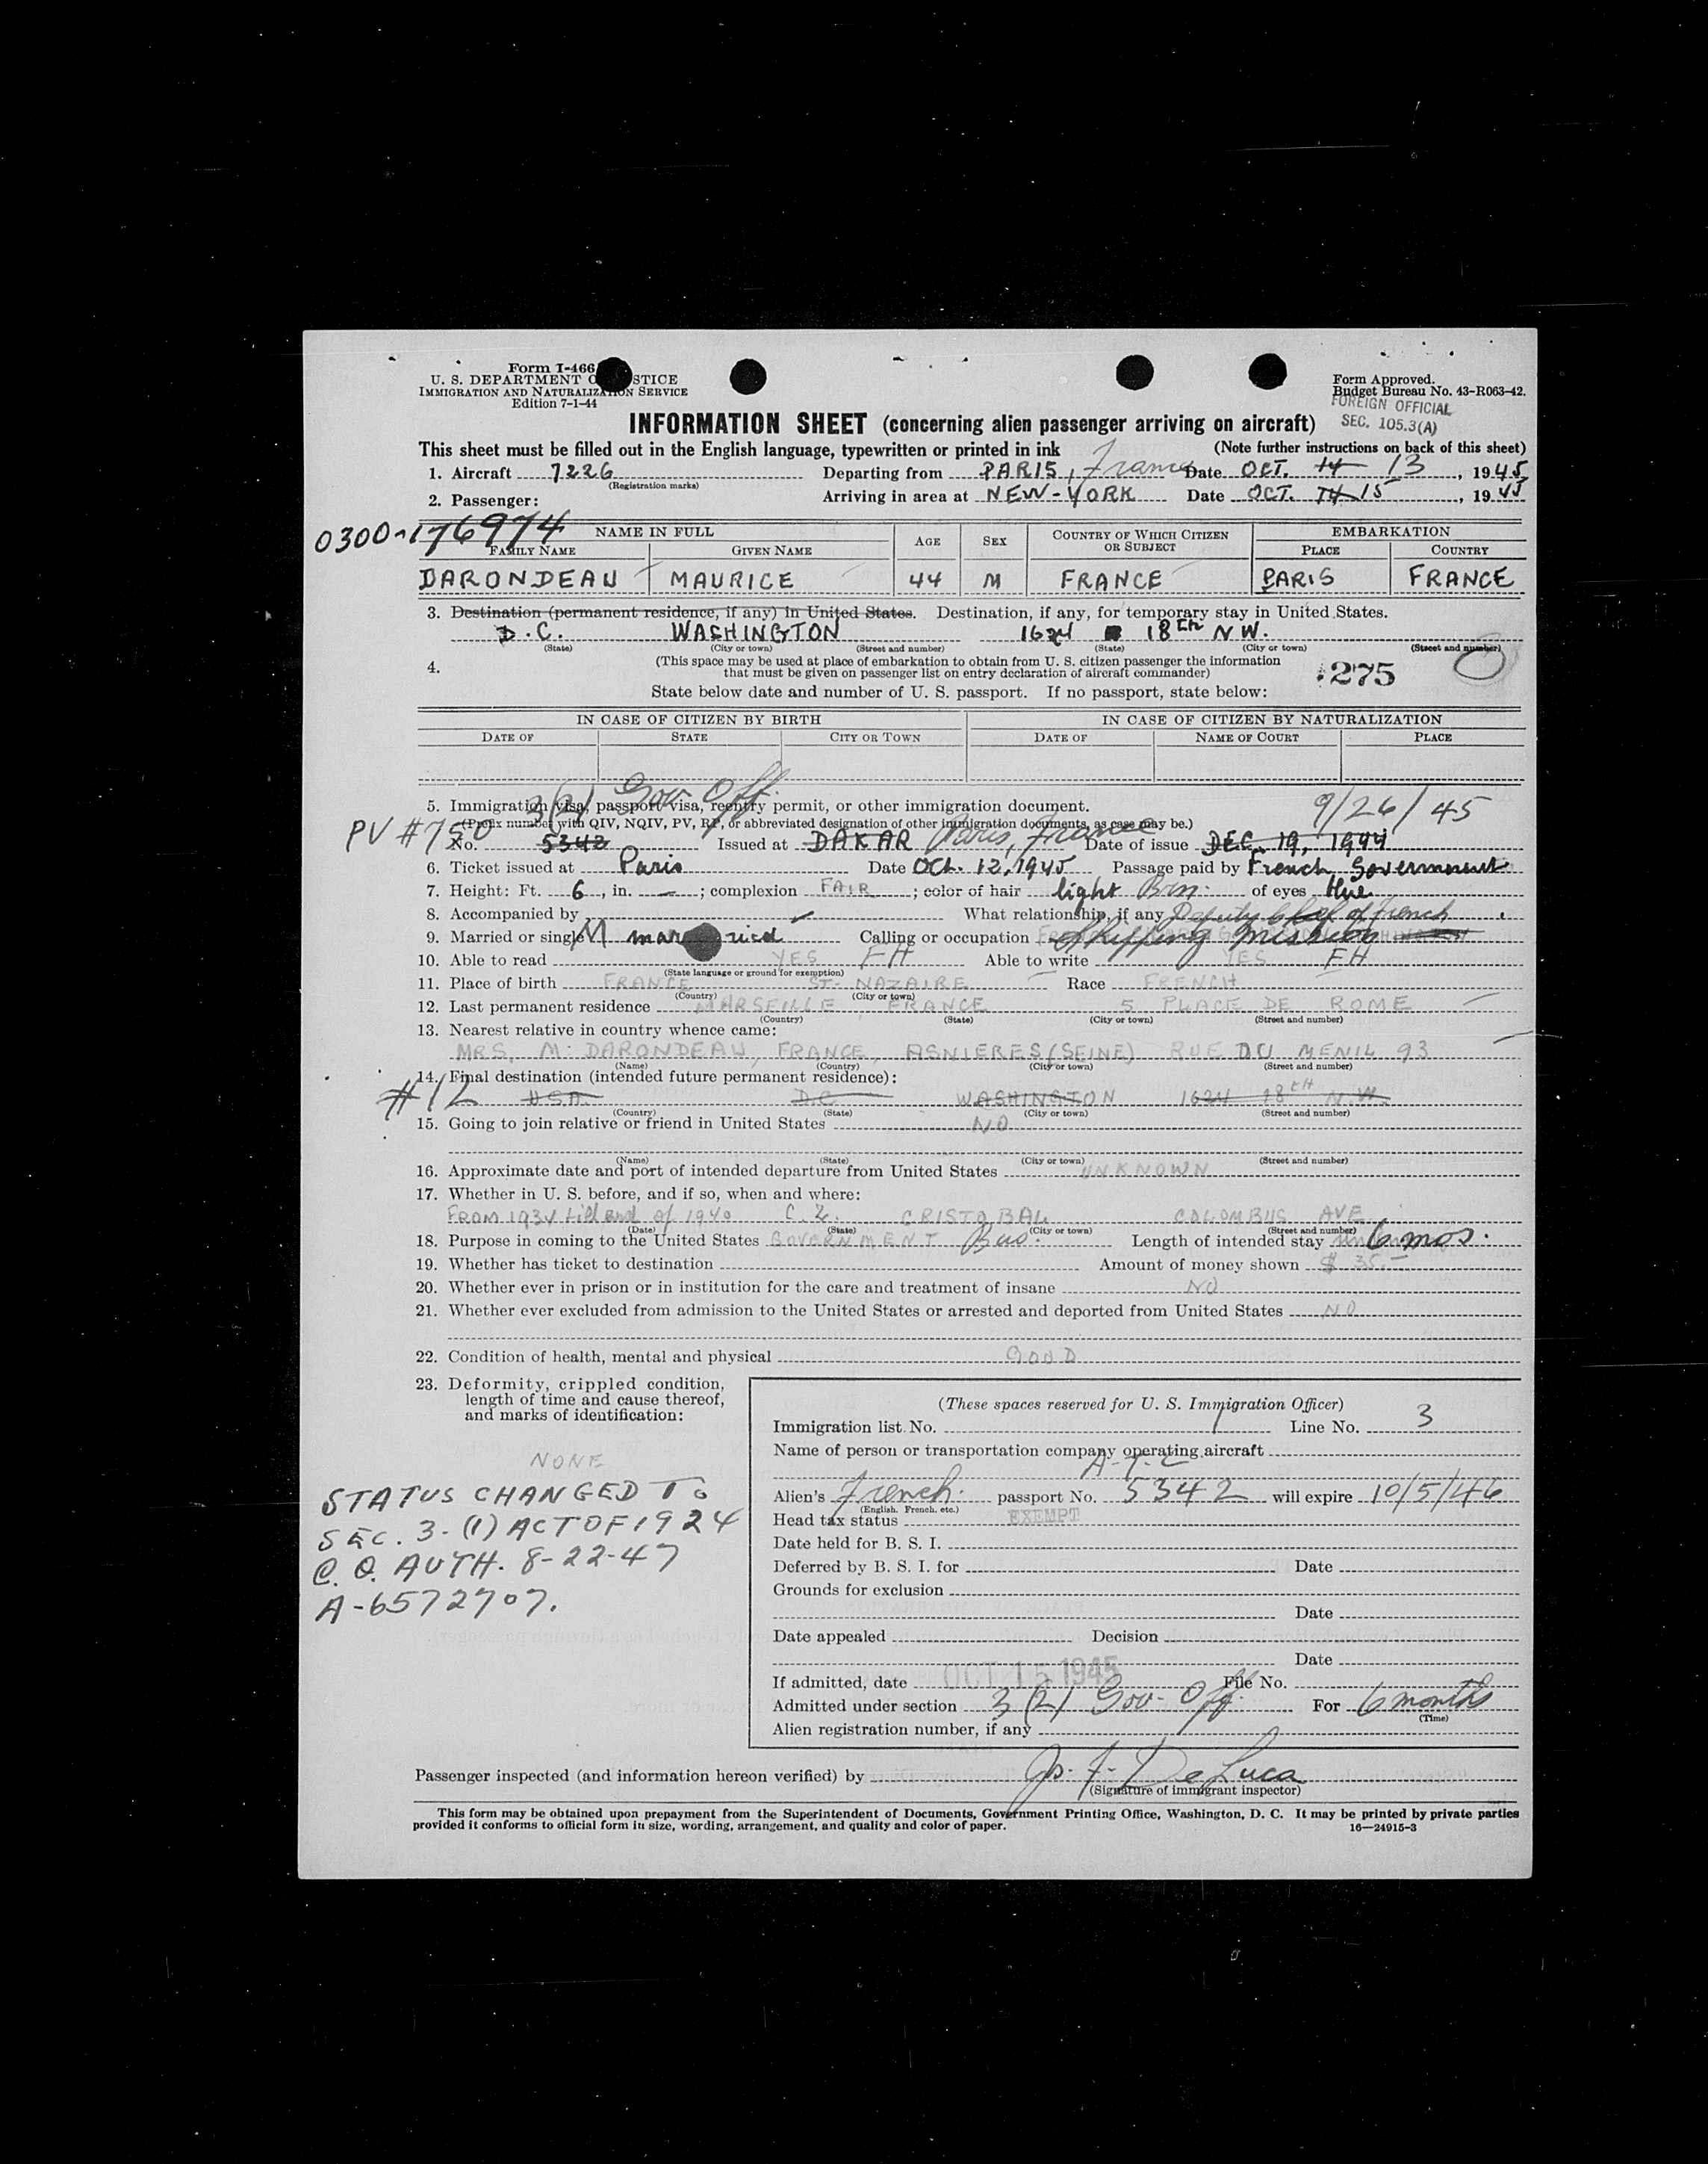 Form I-466
U. S. DEPARTMENT OF JUSTICE
IMMIGRATION AND NATURALIZATION SERVICE
Edition 7-1-44
Form Approved.
Budget Bureau No. 43-R063-42.
FOREIGN OFFICIAL
SEC. 105.3(A)
INFORMATION SHEET (concerning alien passenger arriving on aircraft)
This sheet must be filled out in the English language, typewritten or printed in ink (Note further instructions on back of this sheet)
1. Aircraft 7226 Departing from PARIS, France Date OCT. 14 13, 1945
(Registration marks)
2. Passenger: Arriving in area at NEW-YORK Date OCT. 14 15, 1945
0300-176974
NAME IN FULL AGE SEX COUNTRY OF WHICH CITIZEN OR SUBJECT EMBARKATION
FAMILY NAME GIVEN NAME PLACE COUNTRY
DARONDEAU MAURICE 44 M FRANCE PARIS FRANCE
3. Destination (permanent residence, if any) in United States. Destination, if any, for temporary stay in United States.
D.C. WASHINGTON 1624 18th NW.
(State) (City or town) (Street and number) (State) (City or town) (Street and number)
4. (This space may be used at place of embarkation to obtain from U. S. citizen passenger the information
that must be given on passenger list on entry declaration of aircraft commander)
275
State below date and number of U. S. passport. If no passport, state below:
IN CASE OF CITIZEN BY BIRTH IN CASE OF CITIZEN BY NATURALIZATION
DATE OF STATE CITY OR TOWN DATE OF NAME OF COURT PLACE
3(2) Gov Off.
5. Immigration visa, passport visa, reentry permit, or other immigration document. 9/26/45
(Prefix number with QIV, NQIV, PV, RP, or abbreviated designation of other immigration documents, as case may be.)
PV #750 No. 5342 Issued at DAKAR Paris, France Date of issue DEC. 19, 1944
6. Ticket issued at Paris Date Oct. 12, 1945 Passage paid by French Government
7. Height: Ft. 6, in. —; complexion FAIR; color of hair light Brn. of eyes blue
8. Accompanied by What relationship, if any Deputy Chief of French
9. Married or single M married Calling or occupation Shipping Mission
10. Able to read YES FH Able to write YES FH
(State language or ground for exemption)
11. Place of birth FRANCE ST-NAZAIRE Race FRENCH
(Country) (City or town)
12. Last permanent residence MARSEILLE, FRANCE 5 PLACE DE ROME
(Country) (State) (City or town) (Street and number)
13. Nearest relative in country whence came:
MRS. M. DARONDEAU, FRANCE, ASNIERES (SEINE) RUE DU MENIL 93
(Name) (Country) (City or town) (Street and number)
14. Final destination (intended future permanent residence):
#12 USA D.C WASHINGTON 1624 18th N.W.
(Country) (State) (City or town) (Street and number)
15. Going to join relative or friend in United States NO
(Name) (State) (City or town) (Street and number)
16. Approximate date and port of intended departure from United States UNKNOWN
17. Whether in U. S. before, and if so, when and where:
FROM 1934 till end of 1940 C.Z. CRISTOBAL COLOMBUS AVE
(Date) (State) (City or town) (Street and number)
18. Purpose in coming to the United States GOVERNMENT Bus. Length of intended stay 6 mos.
19. Whether has ticket to destination Amount of money shown $ 35.—
20. Whether ever in prison or in institution for the care and treatment of insane NO
21. Whether ever excluded from admission to the United States or arrested and deported from United States NO
22. Condition of health, mental and physical GOOD
23. Deformity, crippled condition,
length of time and cause thereof,
and marks of identification:
NONE
STATUS CHANGED TO
SEC. 3-(1) ACT OF 1924
C.O. AUTH. 8-22-47
A-6572707.
(These spaces reserved for U. S. Immigration Officer)
Immigration list No. 1 Line No. 3
Name of person or transportation company operating aircraft
A-T-C
Alien's French passport No. 5342 will expire 10/5/46
(English, French, etc.)
Head tax status EXEMPT
Date held for B. S. I.
Deferred by B. S. I. for Date
Grounds for exclusion
Date
Date appealed Decision
Date
If admitted, date OCT 15 1945 File No.
Admitted under section 3(2) Gov-Off. For 6 months
(Time)
Alien registration number, if any
Passenger inspected (and information hereon verified) by Jos. F. De Luca
(Signature of immigrant inspector)
This form may be obtained upon prepayment from the Superintendent of Documents, Government Printing Office, Washington, D. C. It may be printed by private parties
provided it conforms to official form in size, wording, arrangement, and quality and color of paper. 16—24915-3